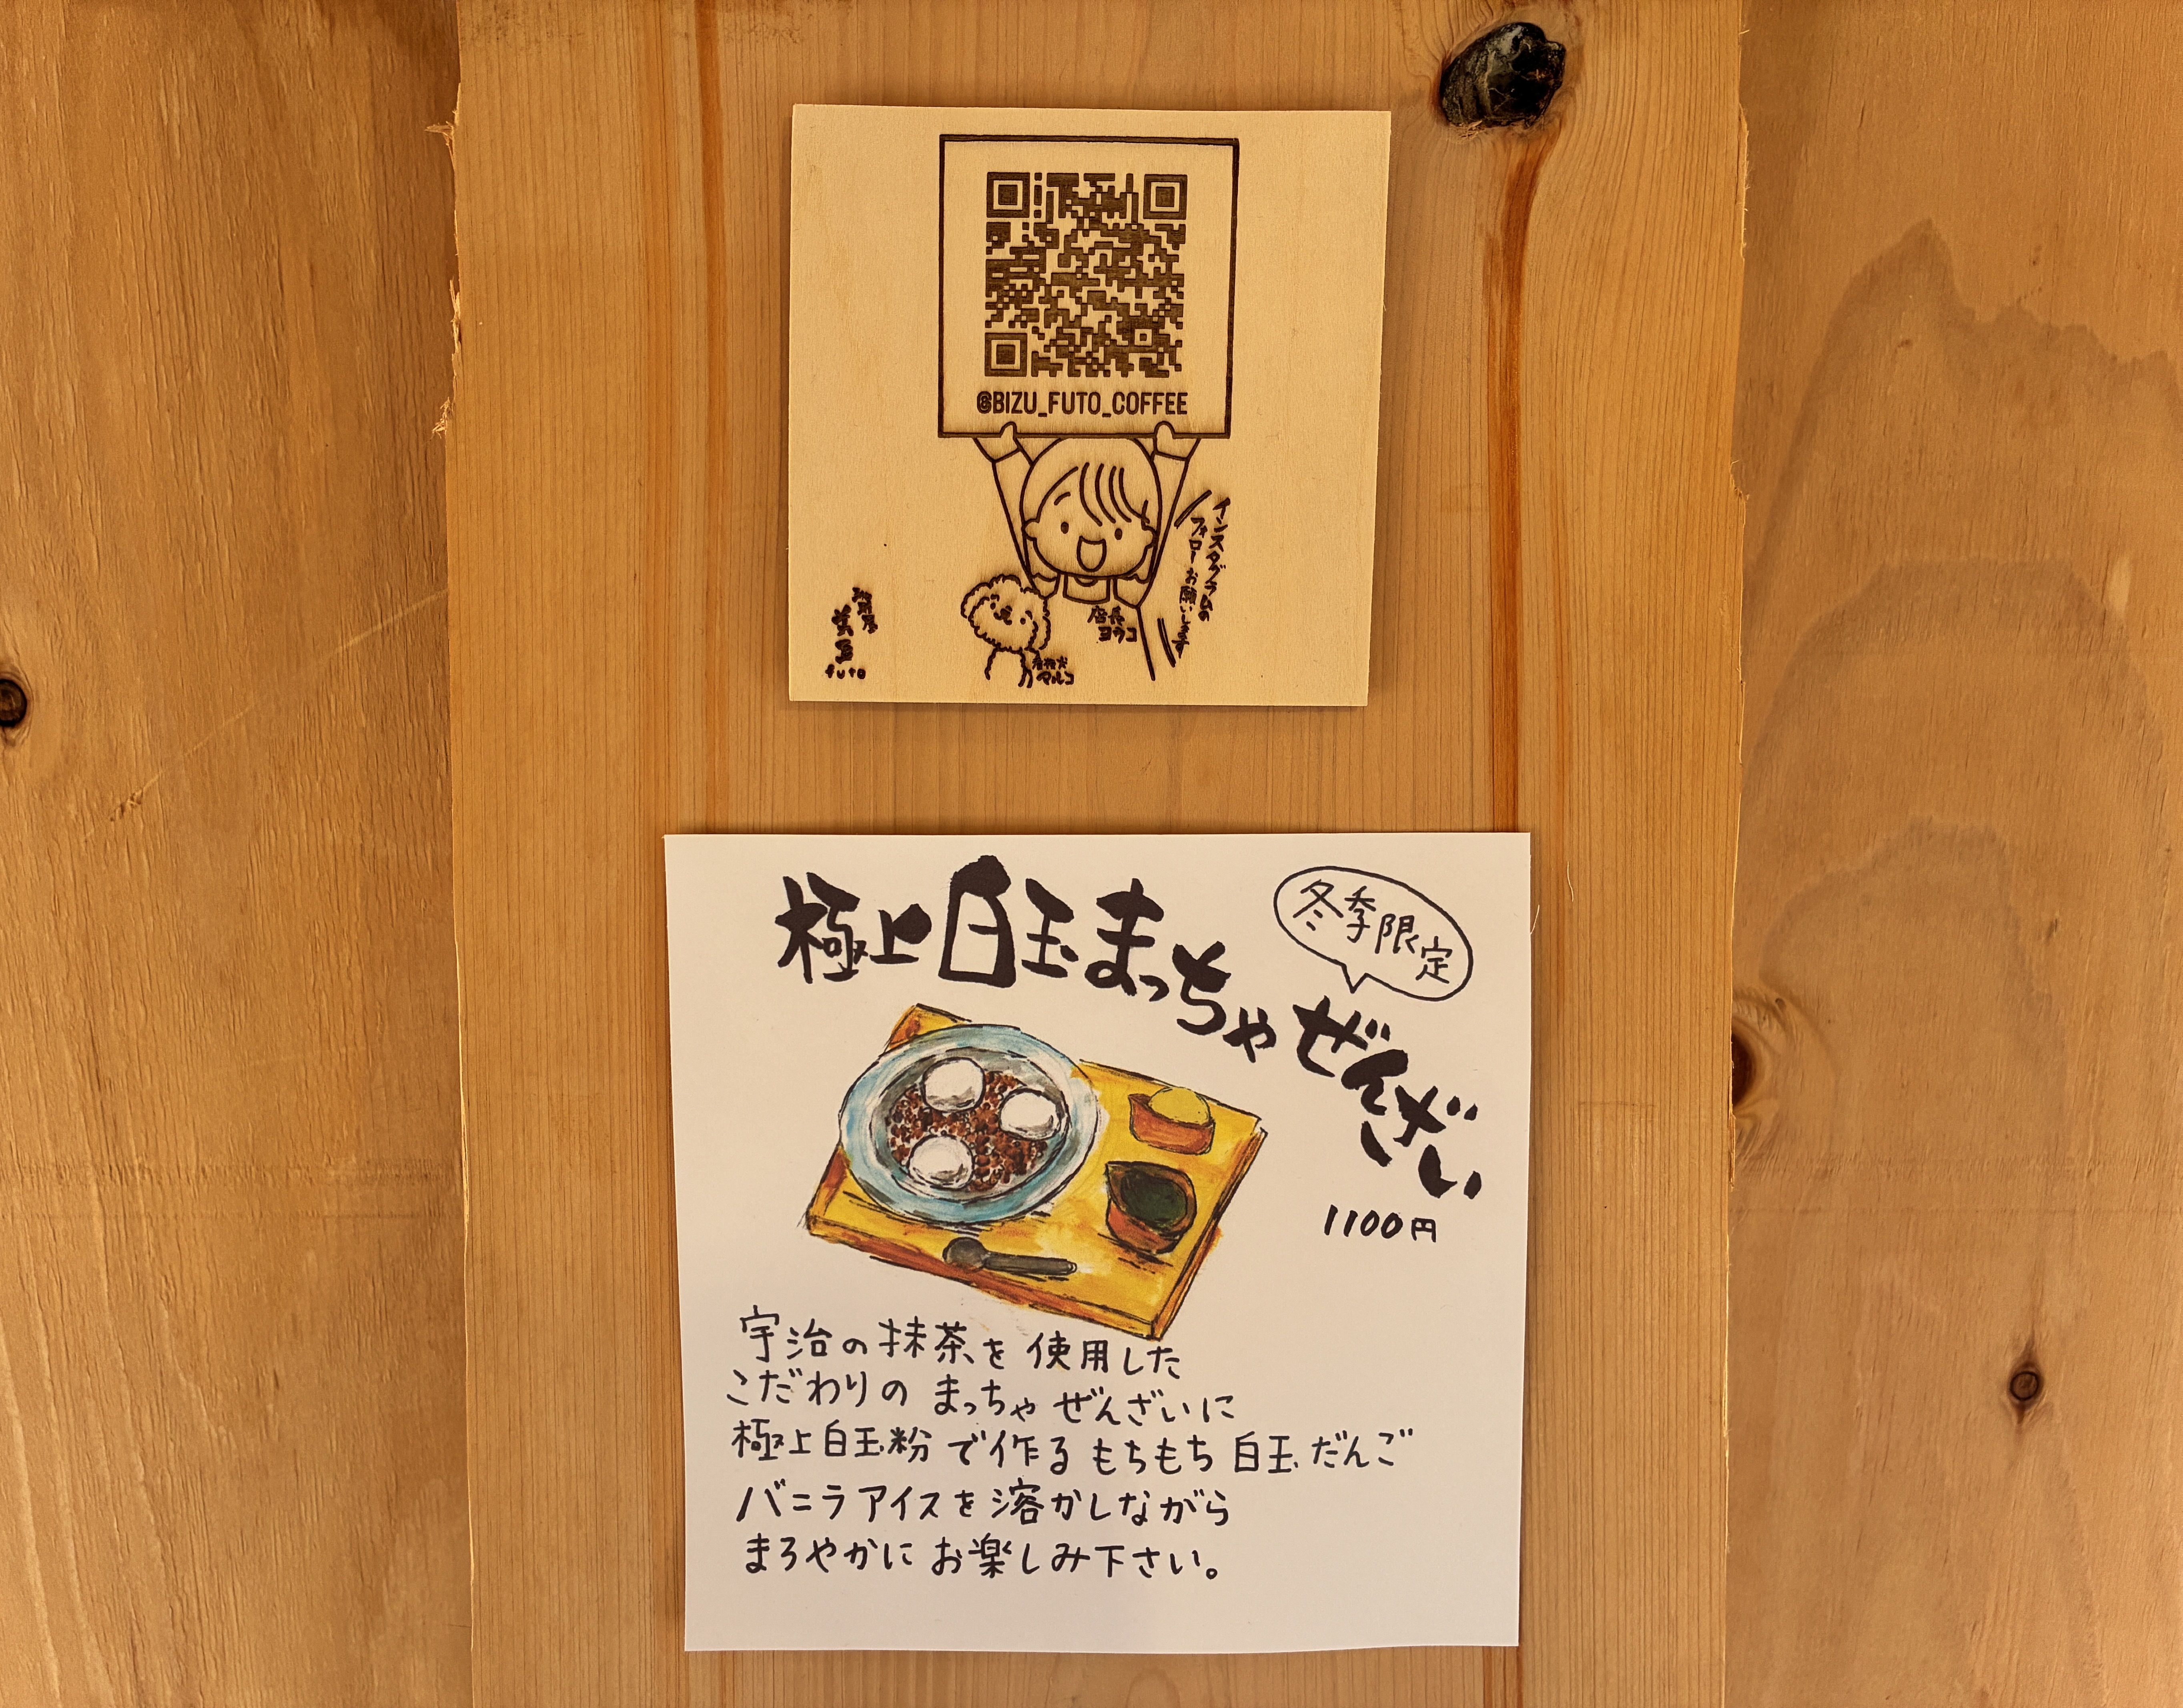 @BIZU_FUTO_COFFEE
インスタグラムの
フォローお願いします
店長
ヨウコ
看板犬
マルコ
futo
極上白玉まっちゃぜんざい
冬季限定
1100円
宇治の抹茶を使用した
こだわりの まっちゃ ぜんざいに
極上白玉粉で作る もちもち 白玉だんご
バニラアイスを溶かしながら
まろやかに お楽しみ下さい。